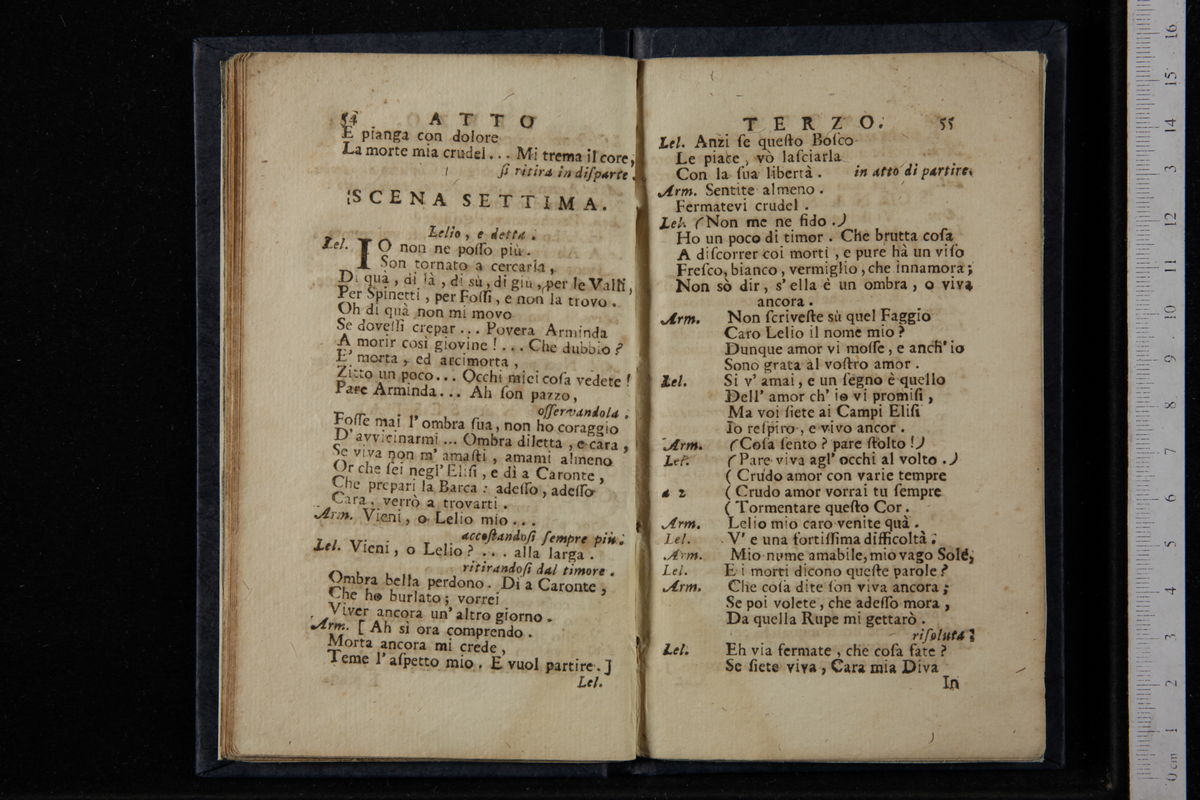 54 ATTO
E pianga con dolore
La morte mia crudel... Mi trema il core,
ſi ritira in diſparte.
SCENA SETTIMA.
Lelio, e detta.
Lel. IO non ne poſſo più.
Son tornato a cercarla,
Di quà, di là, di sù, di giù, per le Valli,
Per Spinetti, per Foſſi, e non la trovo.
Oh di quà non mi movo
Se doveſſi crepar... Povera Arminda
A morir così giovine!... Che dubbio?
E' morta, ed arcimorta,
Zitto un poco... Occhi miei coſa vedete!
Pare Arminda... Ah ſon pazzo,
oſſervandola.
Foſſe mai l'ombra ſua, non ho coraggio
D'avvicinarmi... Ombra diletta, e cara,
Se viva non m'amaſti, amami almeno
Or che ſei negl'Eliſi, e dì a Caronte,
Che prepari la Barca: adeſſo, adeſſo
Cara, verrò a trovarti.
Arm. Vieni, o Lelio mio...
accoſtandoſi ſempre più.
Lel. Vieni, o Lelio?... alla larga.
ritirandoſi dal timore.
Ombra bella perdono. Dì a Caronte,
Che ho burlato; vorrei
Viver ancora un'altro giorno.
Arm. [Ah sì ora comprendo.
Morta ancora mi crede,
Teme l'aſpetto mio. E vuol partire.]
Lel.
TERZO. 55
Lel. Anzi ſe queſto Boſco
Le piace, vò laſciarla
Con la ſua libertà. in atto di partire.
Arm. Sentite almeno.
Fermatevi crudel.
Lel. (Non me ne fido.)
Ho un poco di timor. Che brutta coſa
A diſcorrer coi morti, e pure hà un viſo
Freſco, bianco, vermiglio, che innamora;
Non sò dir, s'ella è un ombra, o viva
ancora.
Arm. Non ſcriveſte sù quel Faggio
Caro Lelio il nome mio?
Dunque amor vi moſſe, e anch'io
Sono grata al voſtro amor.
Lel. Si v'amai, e un ſegno è quello
Dell'amor ch'io vi promiſi,
Ma voi ſiete ai Campi Eliſi
Io reſpiro, e vivo ancor.
Arm. (Coſa ſento? pare ſtolto!)
Lel. (Pare viva agl'occhi al volto.)
(Crudo amor con varie tempre
a 2 (Crudo amor vorrai tu ſempre
(Tormentare queſto Cor.
Arm. Lelio mio caro venite quà.
Lel. V'e una fortiſſima difficoltà.
Arm. Mio nume amabile, mio vago Sole,
Lel. E i morti dicono queſte parole?
Arm. Che coſa dite ſon viva ancora;
Se poi volete, che adeſſo mora,
Da quella Rupe mi gettarò.
riſoluta.
Lel. Eh via fermate, che coſa fate?
Se ſiete viva, Cara mia Diva
In
16 15 14 13 12 11 10 9 8 7 6 5 4 3 2 1 0 cm